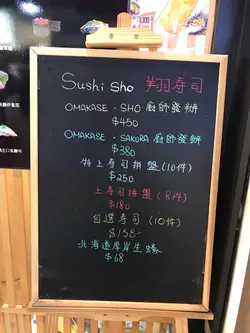 Sushi Sho 翔寿司
OMAKASE · SHO 廚師發辦
$450
OMAKASE · SAKURA 廚師發辦
$380
特上寿司拼盤 (10件)
$250
上寿司拼盤 (8件)
$180
自選寿司 (10件)
$158-
北海道厚岸生蠔
$68